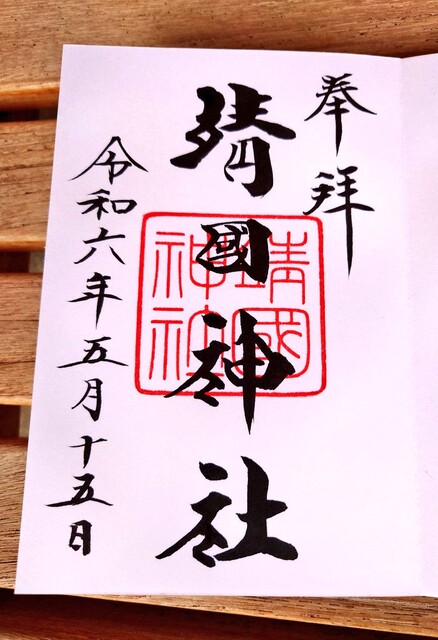 奉拝
靖國神社
靖國
神社
令和六年五月十五日